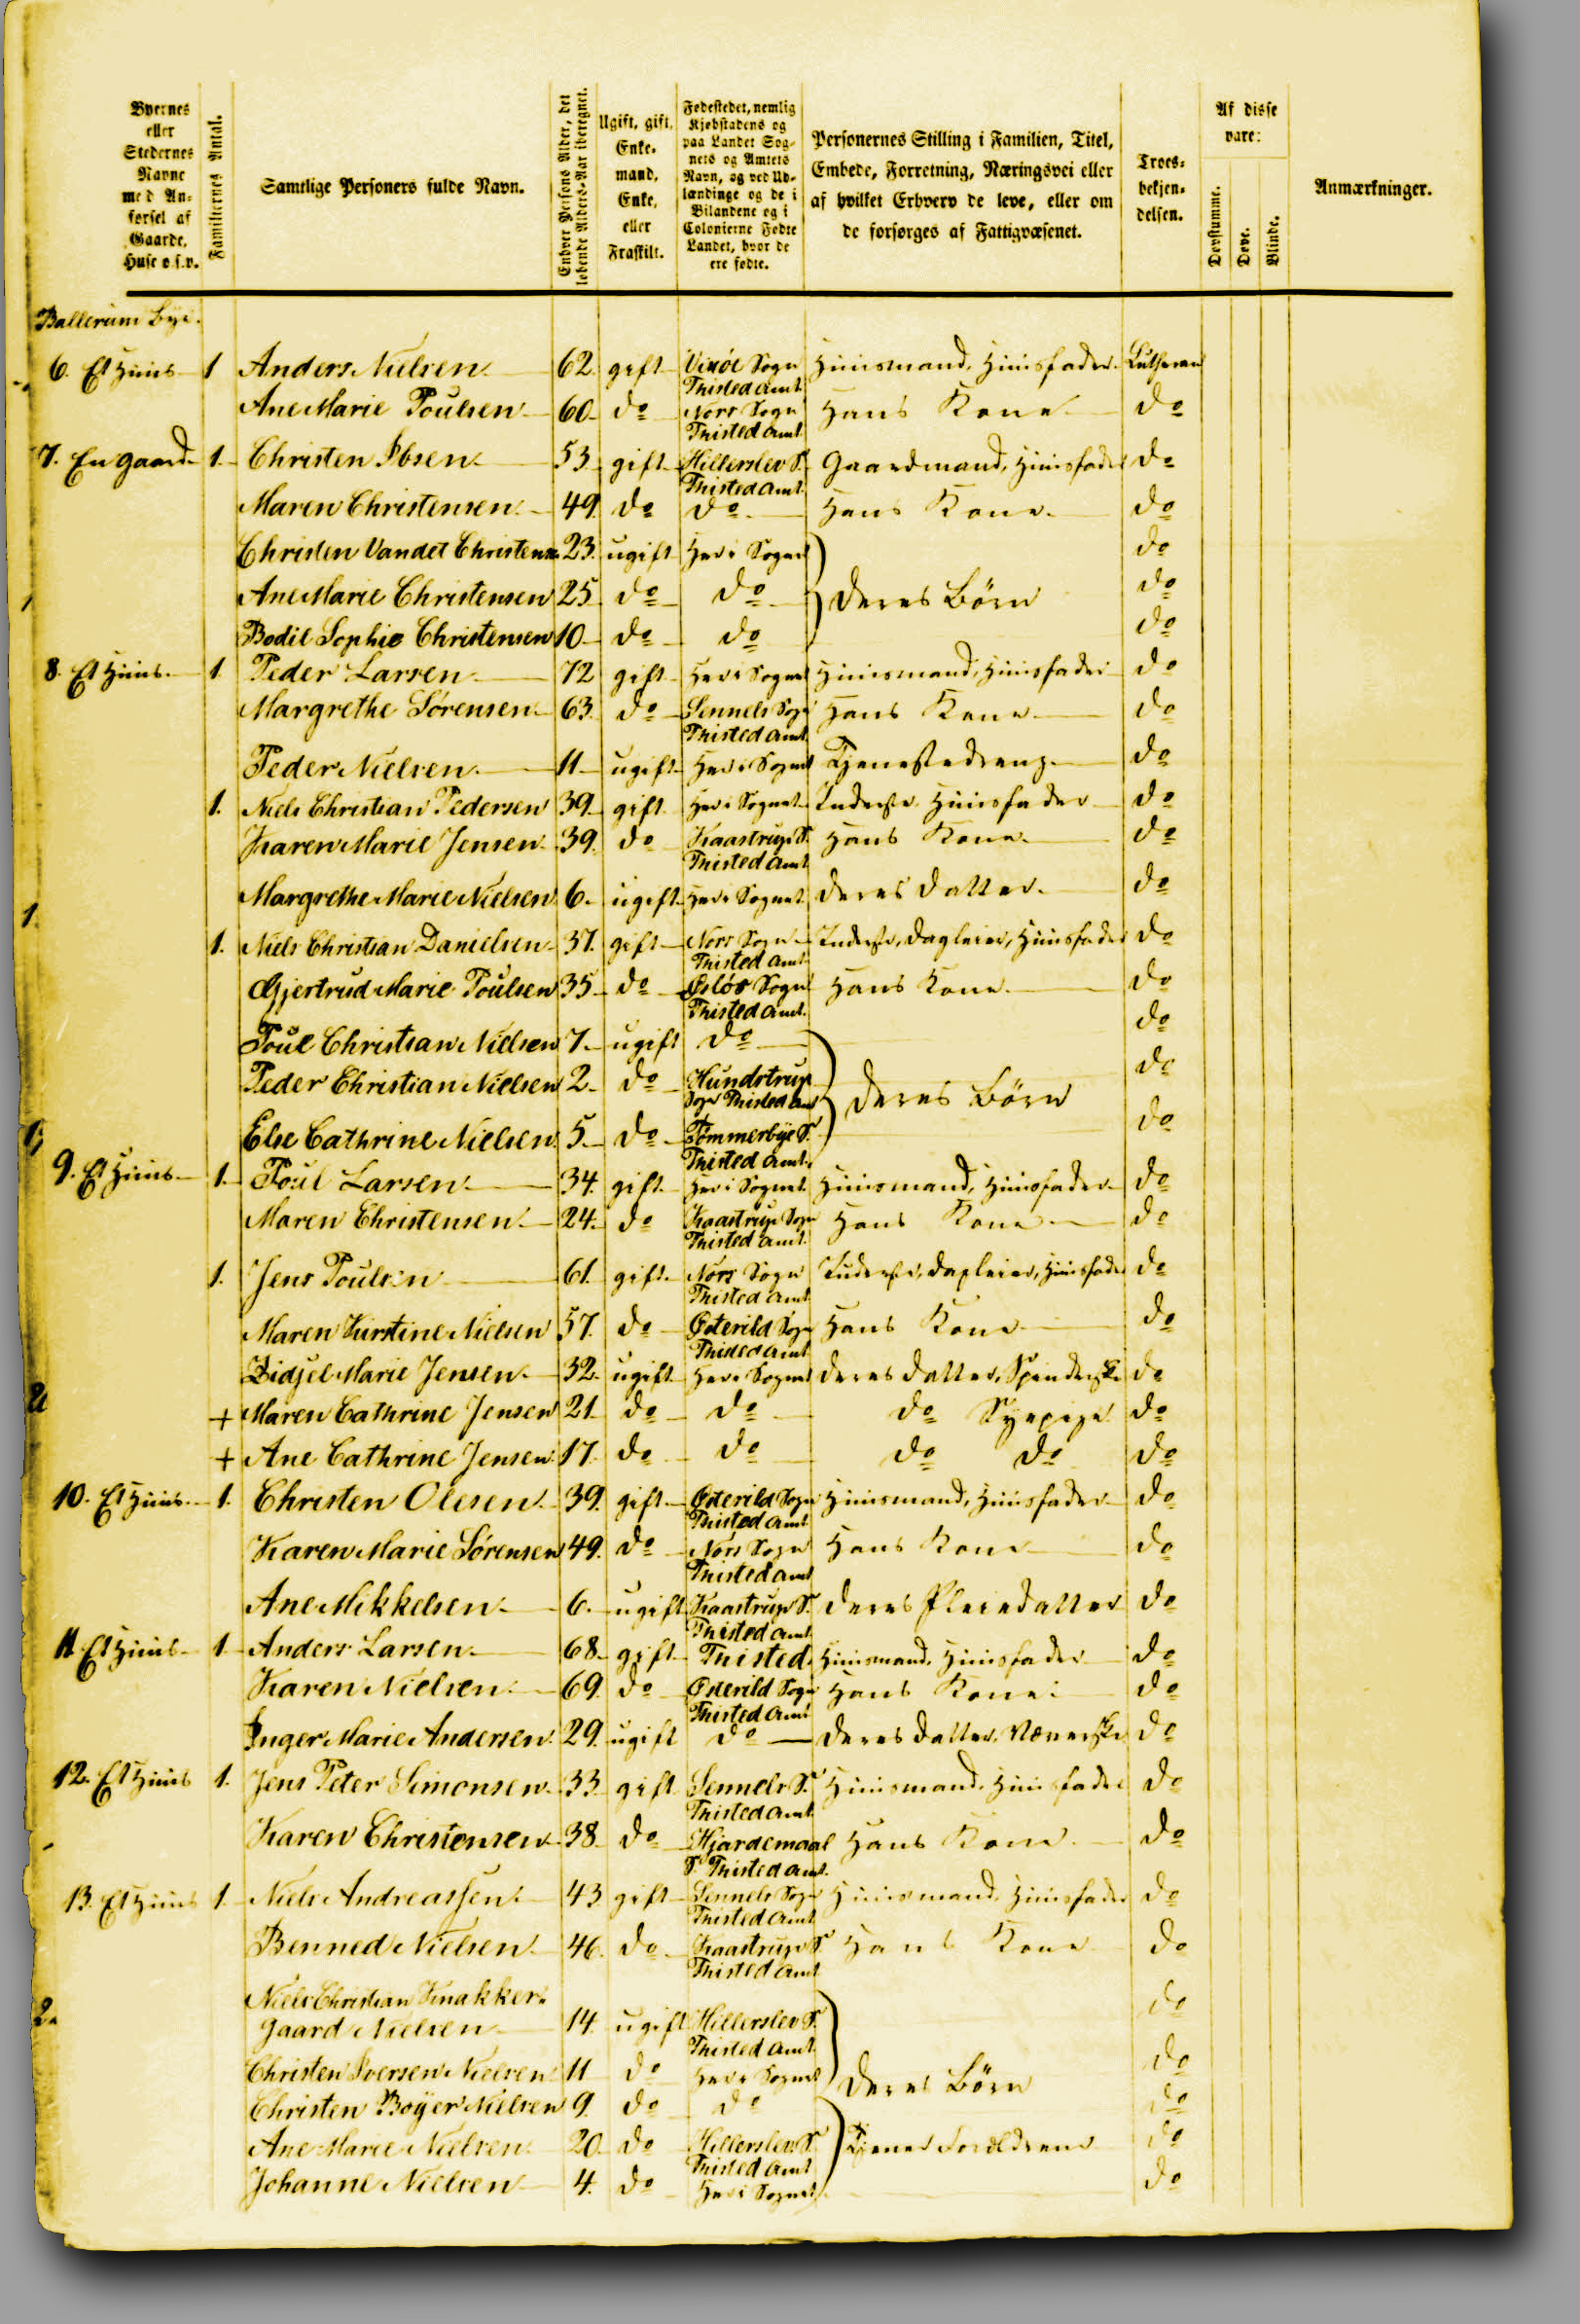 Byernes
eller
Stedernes
Navne
med An-
førsel af
Gaarde,
Huse o.s.v.
Familiernes Antal.
Samtlige Personers fulde Navn.
Enhver Persons Alder, det
løbende Alders-Aar iberegnet.
Ugift, gift,
Enke-
mand,
Enke,
eller
Fraskilt.
Fødestedet, nemlig
Kjøbstadens og
paa Landet Sog-
nets og Amtets
Navn, og ved Ud-
lændinge og de i
Bilandene og i
Colonierne Fødte
Landet, hvor de
ere fødte.
Personernes Stilling i Familien, Titel,
Embede, Forretning, Næringsvei eller
af hvilket Erhverv de leve, eller om
de forsørges af Fattigvæsenet.
Troes-
bekjen-
delsen.
Af disse
vare:
Døvstumme.
Døve.
Blinde.
Anmærkninger.
Ballerum Bye.
6. Et Huus 1 Anders Nielsen 62. gift Vixöe Sogn Huusmand, Huusfader. Lutheran
Thisted Amt
Ane Marie Poulsen 60 do Nors Sogn Hans Kone do
Thisted Amt
7. En Gaard 1. Christen Ibsen 53 gift Hillerslev S. Gaardmand, Huusfader do
Thisted Amt
Maren Christensen 49. do do Hans Kone. do
Christen Vandet Christensen 23. ugift Her i Sognet do
Ane Marie Christensen 25 do do deres Börn do
Bodil Sophie Christensen 10 do do do
8. Et Huus. 1. Peder Larsen 72 gift Her i Sognet Huusmand, Huusfader do
Margrethe Sörensen 63. do Sennels Sogn Hans Kone do
Thisted Amt
Peder Nielsen 11 ugift Her i Sognet Tjenestedreng do
1. Niels Christian Pedersen 39. gift Her i Sognet Inderste, Huusfader do
Karen Marie Jensen 39. do Kaastrup S. Hans Kone. do
Thisted Amt
Margrethe Marie Nielsen 6. ugift Her i Sognet deres datter. do
1. Niels Christian Danielsen 37. gift Nors Sogn Inderste, dagleier, Huusfader do
Thisted Amt
Gjertrud Marie Poulsen 35 do Öslös Sogn Hans Kone do
Thisted Amt.
Poul Christian Nielsen 7. ugift do do
Peder Christian Nielsen 2. do Hundstrup deres Börn do
Sogn Thisted Amt
Else Cathrine Nielsen 5. do Tömmerbye S. do
Thisted Amt.
9. Et Huus 1. Poul Larsen 34. gift Her i Sognet Huusmand, Huusfader do
Maren Christensen 24. do Kaastrup Sogn Hans Kone do
Thisted Amt.
1. Jens Poulsen 61. gift Nors Sogn Inderste, dagleier, Huusfader do
Thisted Amt
Maren Kirstine Nielsen 57. do Österild Sogn Hans Kone do
Thisted Amt
Zidsel Marie Jensen 32. ugift Her i Sognet deres datter, Spinderske do
+ Maren Cathrine Jensen 21 do do do Syepige do
+ Ane Cathrine Jensen 17. do do do do do
10. Et Huus. 1. Christen Olesen 39. gift Österild Sogn Huusmand, Huusfader do
Thisted Amt
Karen Marie Sörensen 49. do Nors Sogn Hans Kone do
Thisted Amt
Ane Mikkelsen 6. ugift Kaastrup S. deres Pleiedatter do
Thisted Amt
11 Et Huus 1 Anders Larsen 68. gift Thisted. Huusmand, Huusfader do
Karen Nielsen 69. do Österild Sogn Hans Kone. do
Thisted Amt
Inger Marie Andersen. 29. ugift do deres datter, Væverske do
12. Et Huus 1. Jens Peter Simonsen 33. gift Sennels S. Huusmand, Huusfader do
Thisted Amt
Karen Christensen 38 do Hjardemaal Hans Kone do
S. Thisted Amt.
13. Et Huus 1. Niels Andreassen 43 gift Sennels Sogn Huusmand, Huusfader do
Thisted Amt
Benned Nielsen 46. do Kaastrup S. Hans Kone do
Thisted Amt
Niels Christian Knakker-
gaard Nielsen 14. ugift Hillerslev S. do
Thisted Amt
Christen Iversen Nielsen 11 do Her i Sognet deres Börn do
Christen Boÿer Nielsen 9. do do do
Ane Marie Nielsen 20 do Hillerslev S. Tjener Forældrene do
Thisted Amt
Johanne Nielsen 4. do Her i Sognet do